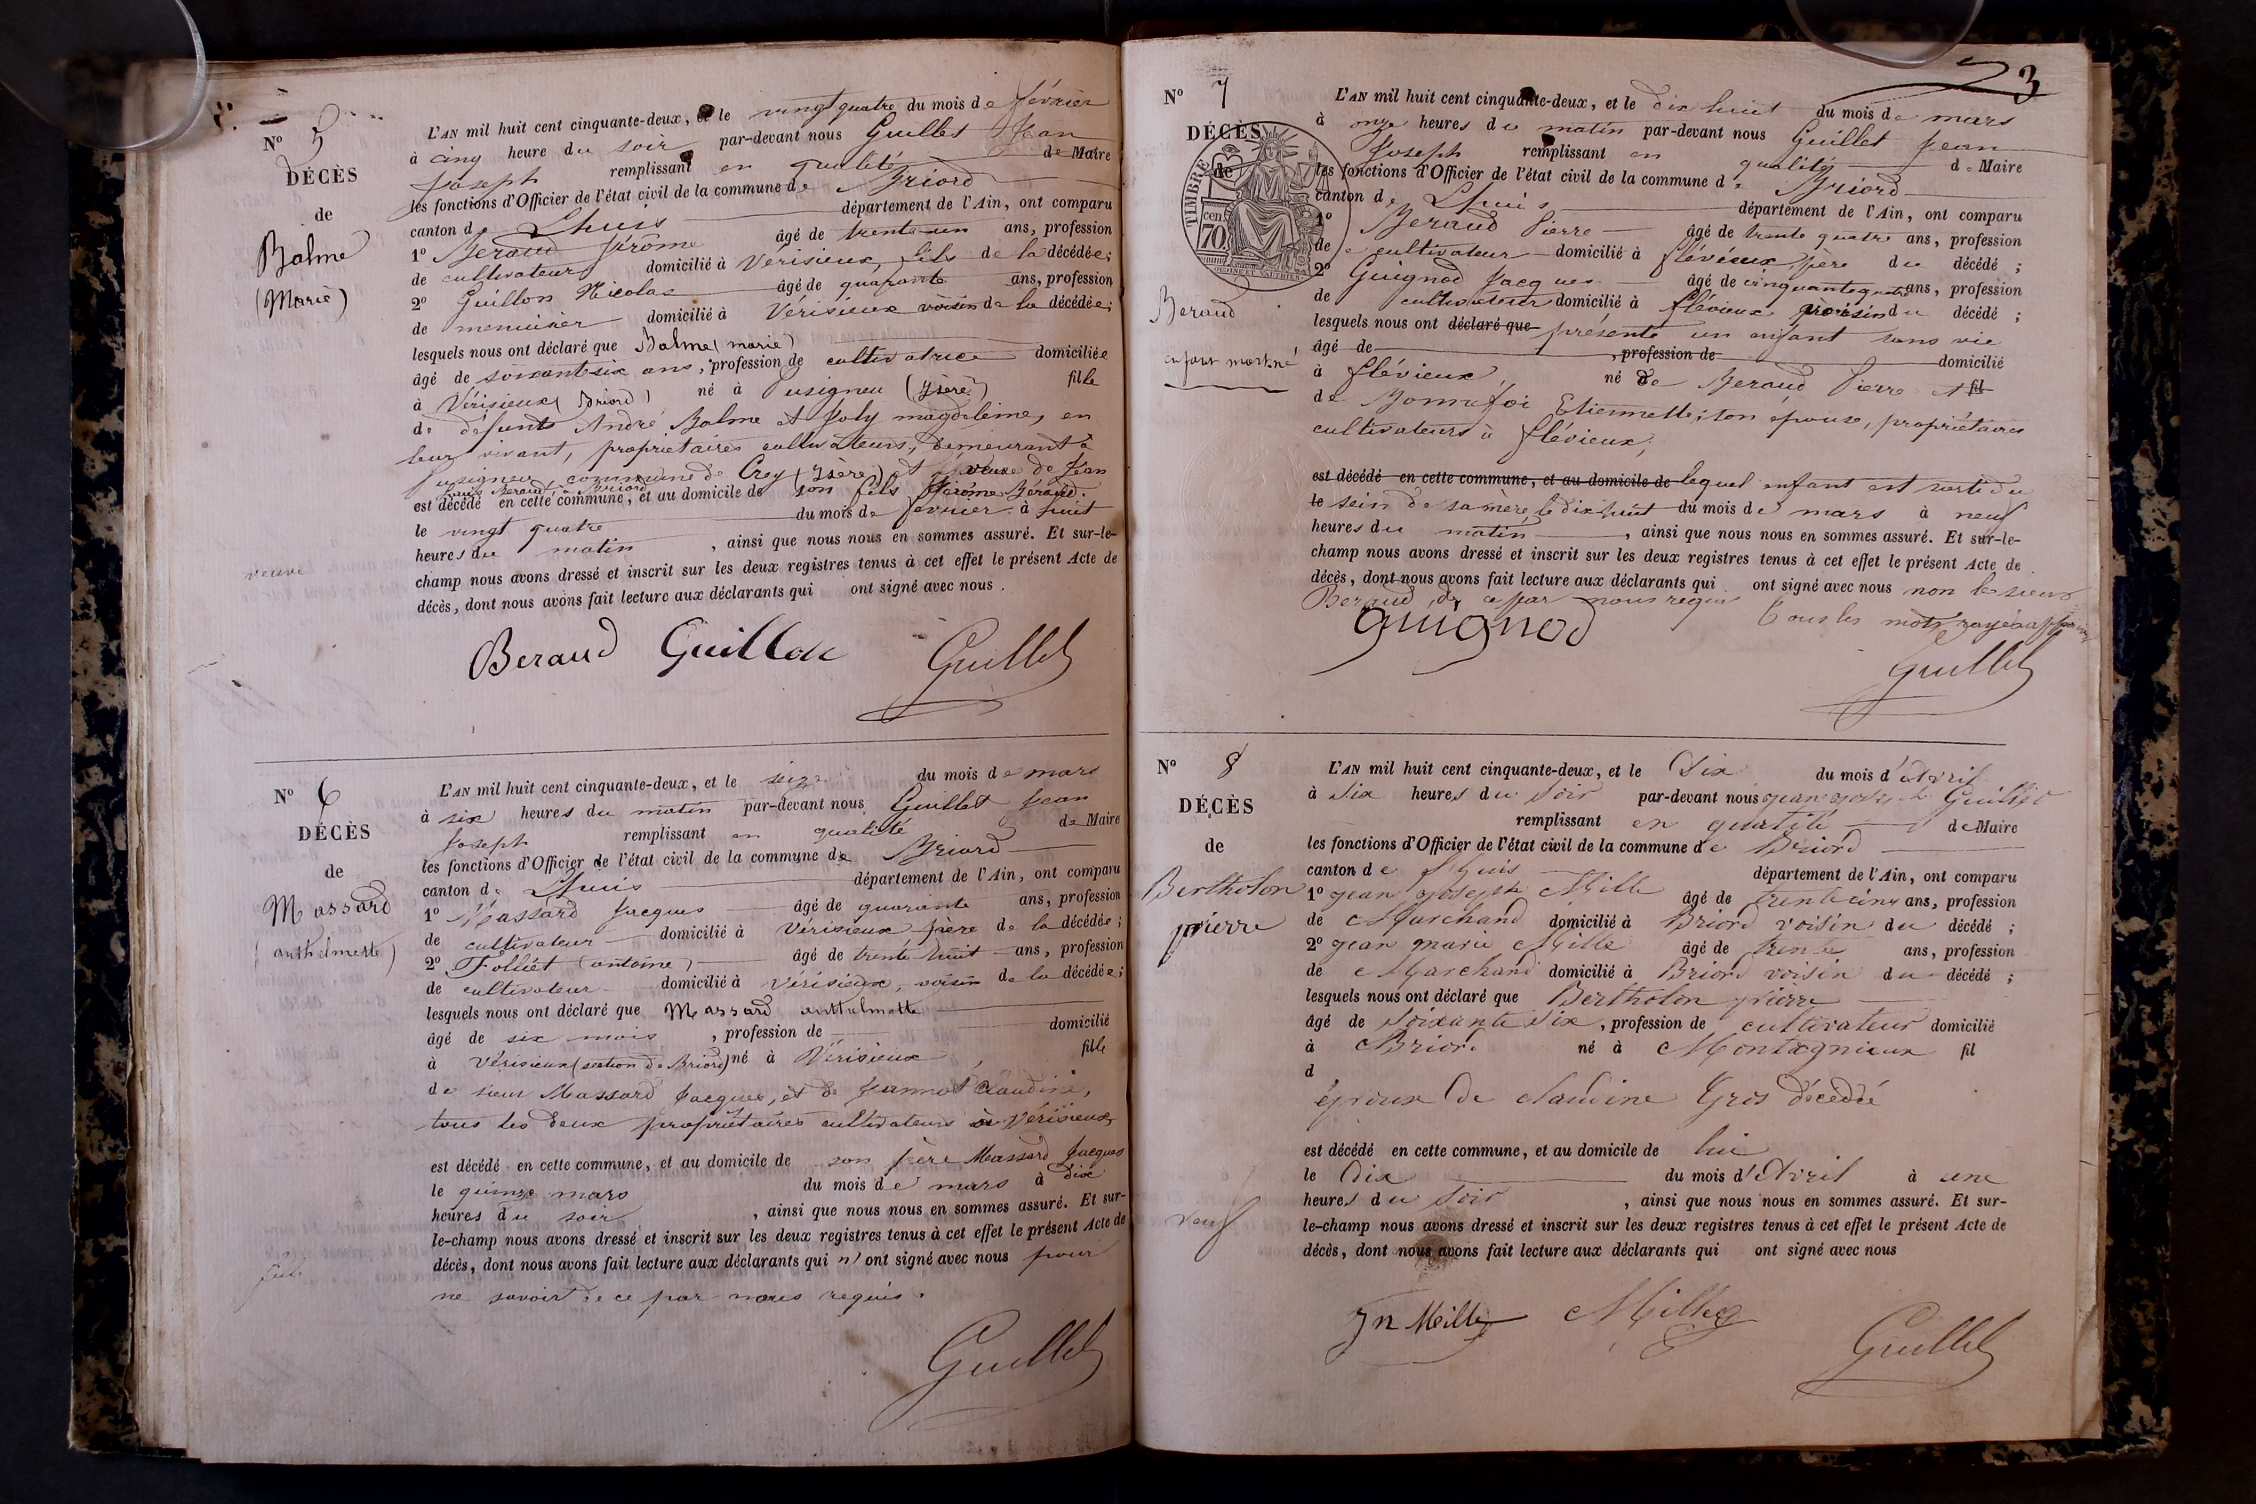 N° 5
DÉCÈS
de
Balme
(Marie)
veuve
L'AN mil huit cent cinquante-deux, et le vingt quatre du mois de février
à cinq heure du soir par-devant nous Guillet Jean
Joseph remplissant en qualité de Maire
les fonctions d'Officier de l'état civil de la commune de Briord
canton de Lhuis département de l'Ain, ont comparu
1° Beraud Jérôme âgé de trente un ans, profession
de cultivateur domicilié à Vérisieux, fils de la décédée;
2° Guillon Nicolas âgé de quarante ans, profession
de menuisier domicilié à Vérisieux voisin de la décédée;
lesquels nous ont déclaré que Balme (marie)
âgé de soixante six ans, profession de cultivatrice domiciliée
à Vérisieux (Briord) né à Pusigneu (Isère) fille
de défunts André Balme et Joly magdeleine, en
leur vivant, propriétaires cultivateurs, demeurant à
Pusigneu, commune de Crey (Isère) et veuve de Jean
Beraud, à Briord
est décédé en cette commune, et au domicile de son fils Jérôme Béraud.
le vingt quatre du mois de février à huit
heures du matin, ainsi que nous nous en sommes assuré. Et sur-le-
champ nous avons dressé et inscrit sur les deux registres tenus à cet effet le présent Acte de
décès, dont nous avons fait lecture aux déclarants qui ont signé avec nous.
Beraud Guillon Guillet
N° 6
DÉCÈS
de
Massard
(anthelmette)
L'AN mil huit cent cinquante-deux, et le seize du mois de mars
à six heures du matin par-devant nous Guillet Jean
Joseph remplissant en qualité de Maire
les fonctions d'Officier de l'état civil de la commune de Briord
canton de Lhuis département de l'Ain, ont comparu
1° Massard Jacques âgé de quarante ans, profession
de cultivateur domicilié à Vérisieux père de la décédée;
2° Folliet (antoine) âgé de trente huit ans, profession
de cultivateur domicilié à Vérisieux, voisin de la décédée;
lesquels nous ont déclaré que Massard anthelmette
âgé de six mois, profession de domicilié
à Vérisieux (section de Briord) né à Vérisieux, fille
de sieur Massard Jacques, et de Jeannot Claudine,
tous les deux propriétaires cultivateurs à Vérisieux,
est décédé en cette commune, et au domicile de son père Massard Jacques
le quinze mars du mois de mars à dix
heures du soir, ainsi que nous nous en sommes assuré. Et sur-
le-champ nous avons dressé et inscrit sur les deux registres tenus à cet effet le présent Acte de
décès, dont nous avons fait lecture aux déclarants qui n'ont signé avec nous pour
ne savoir de ce par nous requis.
Guillet
3
N° 7
DÉCÈS
de
TIMBRE
70 cen
Beraud
enfant mort né
L'AN mil huit cent cinquante-deux, et le dix huit du mois de mars
à onze heures du matin par-devant nous Guillet Jean
Joseph remplissant en qualité de Maire
les fonctions d'Officier de l'état civil de la commune de Briord
canton de Lhuis département de l'Ain, ont comparu
1° Beraud Pierre âgé de trente quatre ans, profession
de cultivateur domicilié à flévieux, père du décédé;
2° Guignod Jacques âgé de cinquante quatre ans, profession
de cultivateur domicilié à flévieux voisin du décédé;
lesquels nous ont déclaré que présenté un enfant sans vie
âgé de, profession de domicilié
à flévieux, né de Beraud Pierre et fil
de Bonnefoi Etiennette; son épouse, propriétaires
cultivateurs à flévieux,
est décédé en cette commune, et au domicile de lequel enfant est sorti du
le sein de sa mère le dix huit du mois de mars à neuf
heures du matin, ainsi que nous nous en sommes assuré. Et sur-le-
champ nous avons dressé et inscrit sur les deux registres tenus à cet effet le présent Acte de
décès, dont nous avons fait lecture aux déclarants qui ont signé avec nous non le sieur
Beraud, de ce par nous requis Tous les mots rayés
Guignod
Guillet
N° 8
DÉCÈS
de
Bertholon
pierre
veuf
L'AN mil huit cent cinquante-deux, et le Dix du mois d'Avril
à Six heures du Soir par-devant nous jean joseph Guillet
remplissant en qualité de Maire
les fonctions d'Officier de l'état civil de la commune de Briord
canton de Lhuis département de l'Ain, ont comparu
1° jean joseph Mille âgé de trente cinq ans, profession
de Marchand domicilié à Briord voisin du décédé;
2° jean marie Mille âgé de trente ans, profession
de Marchand domicilié à Briord voisin du décédé;
lesquels nous ont déclaré que Bertholon pierre
âgé de Soixante Six, profession de cultivateur domicilié
à Briord né à Montagnieux fil
d
époux de claudine Gros décédée
est décédé en cette commune, et au domicile de lui
le Dix du mois d'Avril à une
heures du Soir, ainsi que nous nous en sommes assuré. Et sur-
le-champ nous avons dressé et inscrit sur les deux registres tenus à cet effet le présent Acte de
décès, dont nous avons fait lecture aux déclarants qui ont signé avec nous
Jn Mille Mille
Guillet